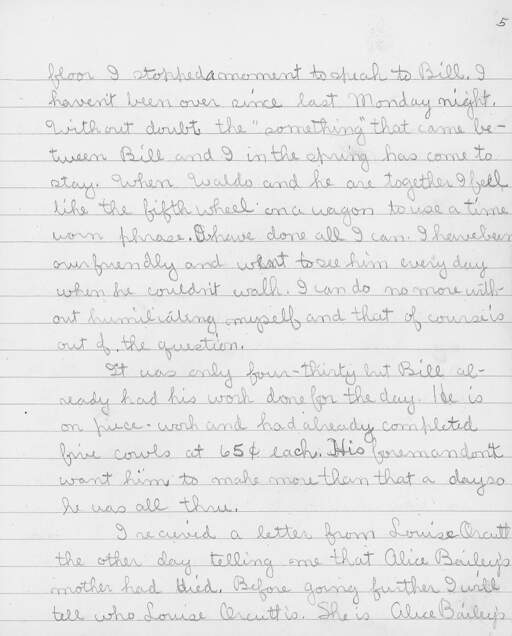 5
floor I stopped a moment to speak to Bill. I
haven't been over since last Monday night.
Without doubt the "something" that came be-
tween Bill and I in the spring has come to
stay. When Waldo and he are together I feel
like the fifth wheel on a wagon to use a time
worn phrase. I have done all I can. I have been
over friendly and went to see him every day
when he couldn't walk. I can do no more with-
out humiliating myself and that of course is
out of the question.
It was only four-thirty but Bill al-
ready had his work done for the day. He is
on piece-work and had already completed
five cowls at 65¢ each. His foreman don't
want him to make more than that a day so
he was all thru.
I received a letter from Louise Orcutt
the other day telling me that Alice Bailey's
mother had died. Before going further I will
tell who Louise Orcutt is. She is Alice Bailey's